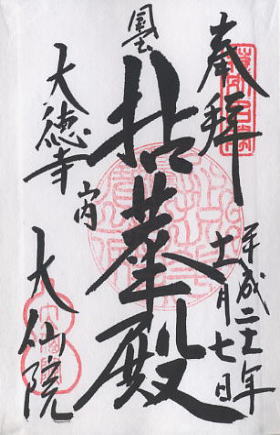 奉拝
平成二十一年
十一月七日
拈華殿
大徳寺
山内
大仙院